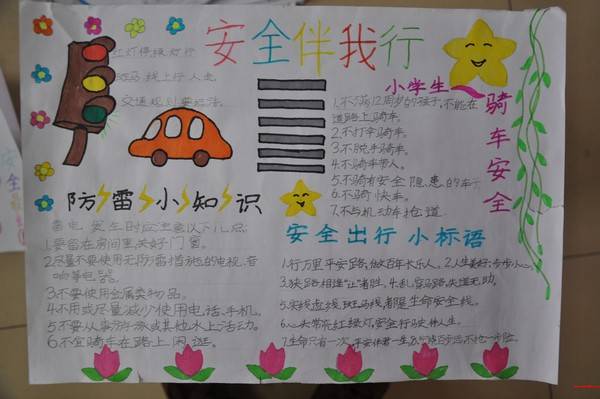 安全伴我行
红灯停绿灯行
斑马线上行人走
交通规则要记活。
小学生骑车安全
1.不满12周岁的孩子,不能在
道路上骑车。
2.不打伞骑车。
3.不脱手骑车。
4.不骑车带人。
5.不骑有安全隐患的车子
6.不骑快车。
7.不与机动车抢道
防雷小知识
雷电发生时应注意以下几点:
1.要留在房间里,关好门窗。
2.尽量不要使用无防雷措施的电视、音
响等电器。
3.不要使用金属类物品。
4.不用或尽量减少使用电话、手机。
5.不要从事游泳或其他水上活动。
6.不宜骑车在路上闲逛。
安全出行小标语
1.行万里平安路,做百年长乐人。2.人生美好,步步小心
3.狭路相逢"让"者胜,4.乱穿马路,失道无助。
5.实线虚线斑马线都是生命安全线。
6.心头常亮红绿灯,安全行驶人生。
7.生命只有一次,平安伴君一生